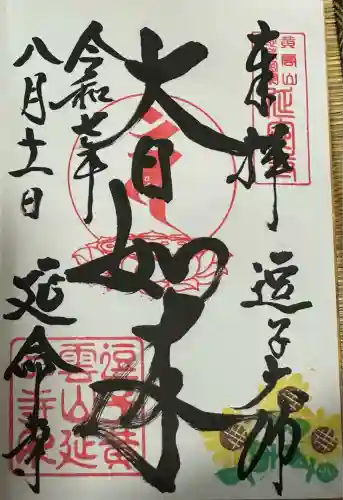 来拝
逗子大師
大日如来
令和七年
八月十一日
延命寺
逗子黄
雲山延
命寺印